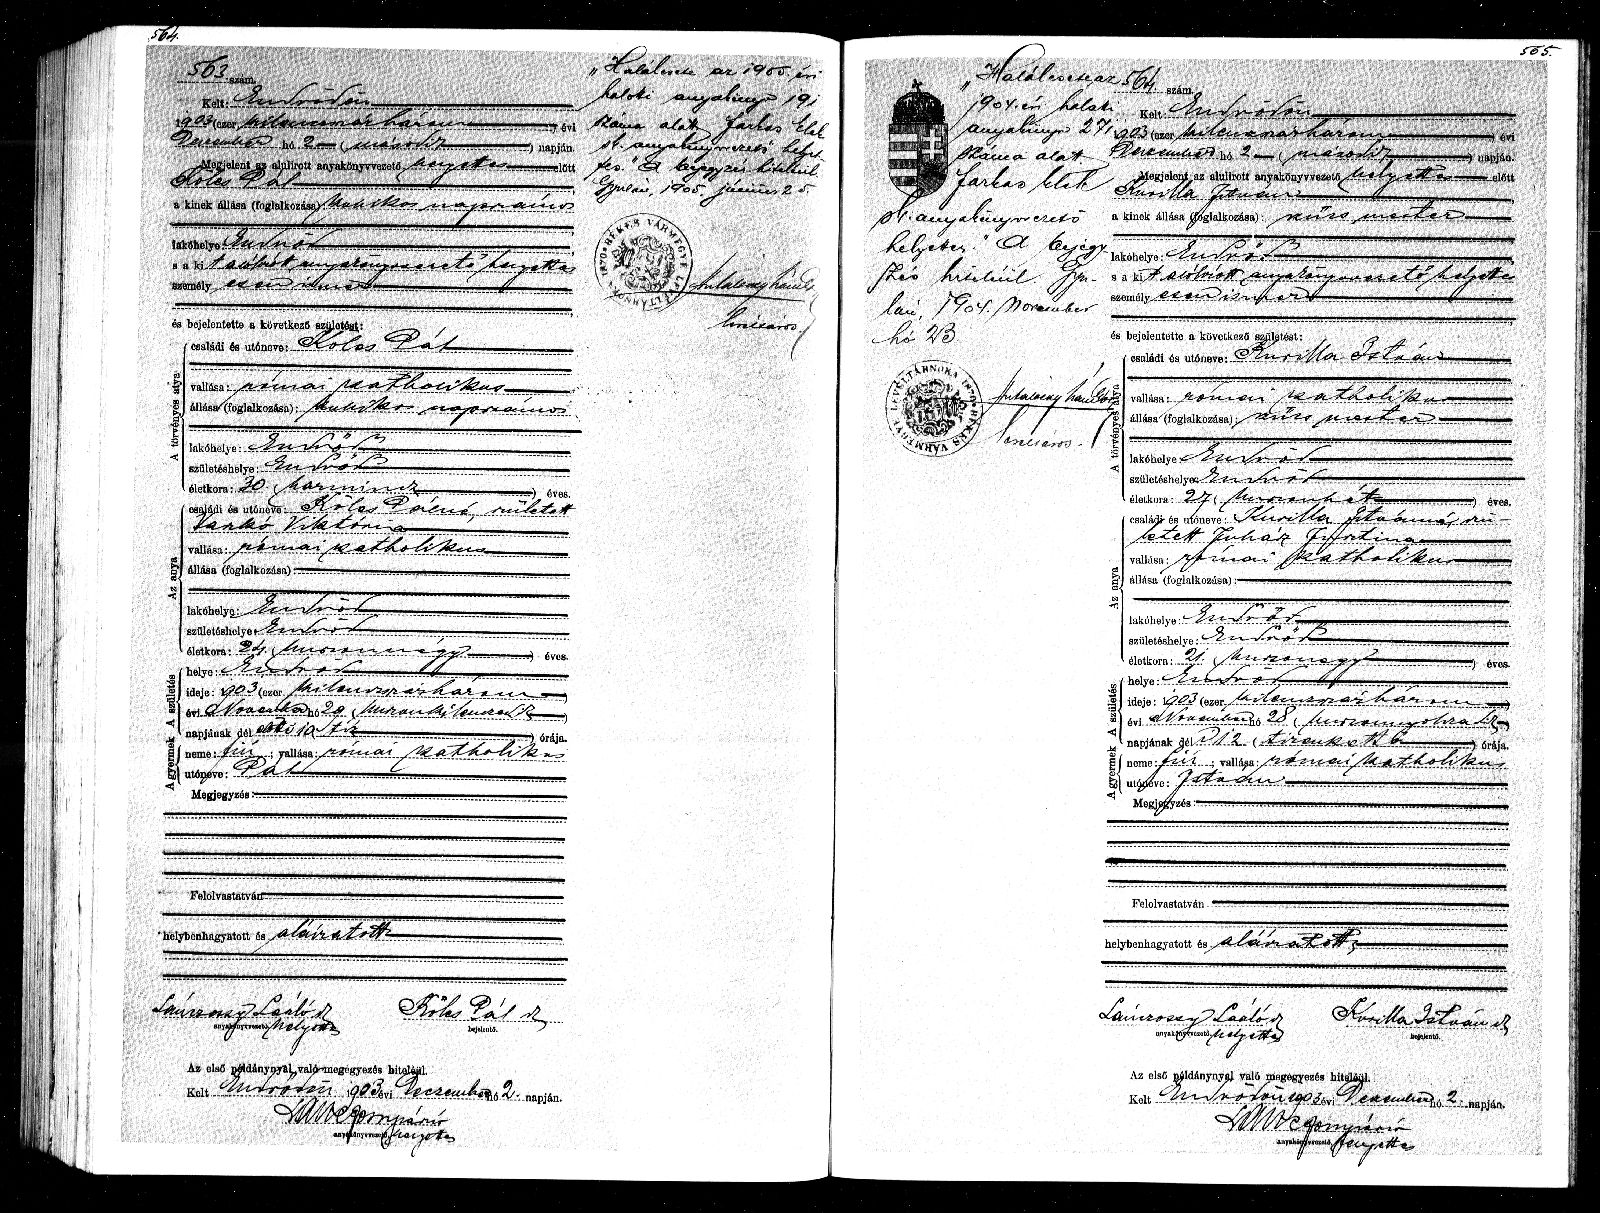 564.
563 szám.
Kelt: Endrődön
1903 (ezer kilencszázhárom) évi
December hó 2 (második) napján.
Megjelent az alulirott anyakönyvvezető helyettes előtt
Kólcs Pál
a kinek állása (foglalkozása) kubikos napszámos
lakóhelye: Endrőd
s a ki t alólirott anyakönyvvezető helyettes
személy esen ismer
és bejelentette a következő születést:
A törvényes atya
családi és utóneve: Kólcs Pál
vallása: római katholikus
állása (foglalkozása): kubikos napszámos
lakóhelye: Endrőd
születéshelye: Endrőd
életkora: 30 (harmincz) éves.
Az anya
családi és utóneve: Kólcs Pálné, született
Varkó Viktória
vallása: római katholikus
állása (foglalkozása)
lakóhelye: Endrőd
születéshelye: Endrőd
életkora: 24 (huszonnégy) éves.
A születés
helye: Endrőd
ideje: 1903 (ezer kilenczszázhárom)
évi November hó 29 (huszonkilenczedik)
napjának dél előtti 10 (tíz) órája.
A gyermek
neme: fiú; vallása: római katholikus
utóneve: Pál
Megjegyzés:
Felolvastatván
helybenhagyatott és aláiratott
László
anyakönyvvezető helyettes
Kólcs Pál
bejelentő.
Az első példánynyal való megegyezés hiteléül.
Kelt Endrődön 1903 évi Deczember hó 2. napján.
anyakönyvvezető helyettes
"Haláleset az 1905. évi
haloti anyakönyv 191
száma alatt Farkas Elek
st. anyakönyvvezető helyet-
tes." A bejegyzés hiteléül.
Gyulán, 1905 június 25.
BÉKÉS VÁRMEGYE LEVÉLTÁRNOKA 1870
565.
"Haláleset az
1904. évi halotti
anyakönyv 271
száma alatt
Farkas Elek
st. anyakönyvvezető
helyettes." A bejegy-
zés hiteléül. Gyu-
lán, 1904. November
hó 23
BÉKÉS VÁRMEGYE LEVÉLTÁRNOKA 1870
564 szám.
Kelt: Endrődön
1903 (ezer kilenczszázhárom) évi
December hó 2 (második) napján.
Megjelent az alulirott anyakönyvvezető helyettes előtt
Kurilla István
a kinek állása (foglalkozása):
lakóhelye: Endrőd
s a ki t alólirott anyakönyvvezető helyettes
személy esen ismer
és bejelentette a következő születést:
A törvényes atya
családi és utóneve: Kurilla István
vallása: római katholikus
állása (foglalkozása):
lakóhelye: Endrőd
születéshelye: Endrőd
életkora: 27 (huszonhét) éves.
Az anya
családi és utóneve: Kurilla Istvánné, szü-
letett Juház Jusztina
vallása: római katholikus
állása (foglalkozása):
lakóhelye: Endrőd
születéshelye: Endrőd
életkora: 24 (huszonnégy) éves.
A születés
helye: Endrőd
ideje: 1903 (ezer kilenczszázhárom)
évi November hó 28 (huszonnyolczadik)
napjának dél 12 (tizenkettő) órája.
A gyermek
neme: fiú; vallása: római katholikus
utóneve: István
Megjegyzés:
Felolvastatván
helybenhagyatott és aláíratott
László
anyakönyvvezető helyettes
Kurilla István
bejelentő.
Az első példánynyal való megegyezés hiteléül.
Kelt Endrődön 1903 évi December hó 2. napján.
anyakönyvvezető helyettes